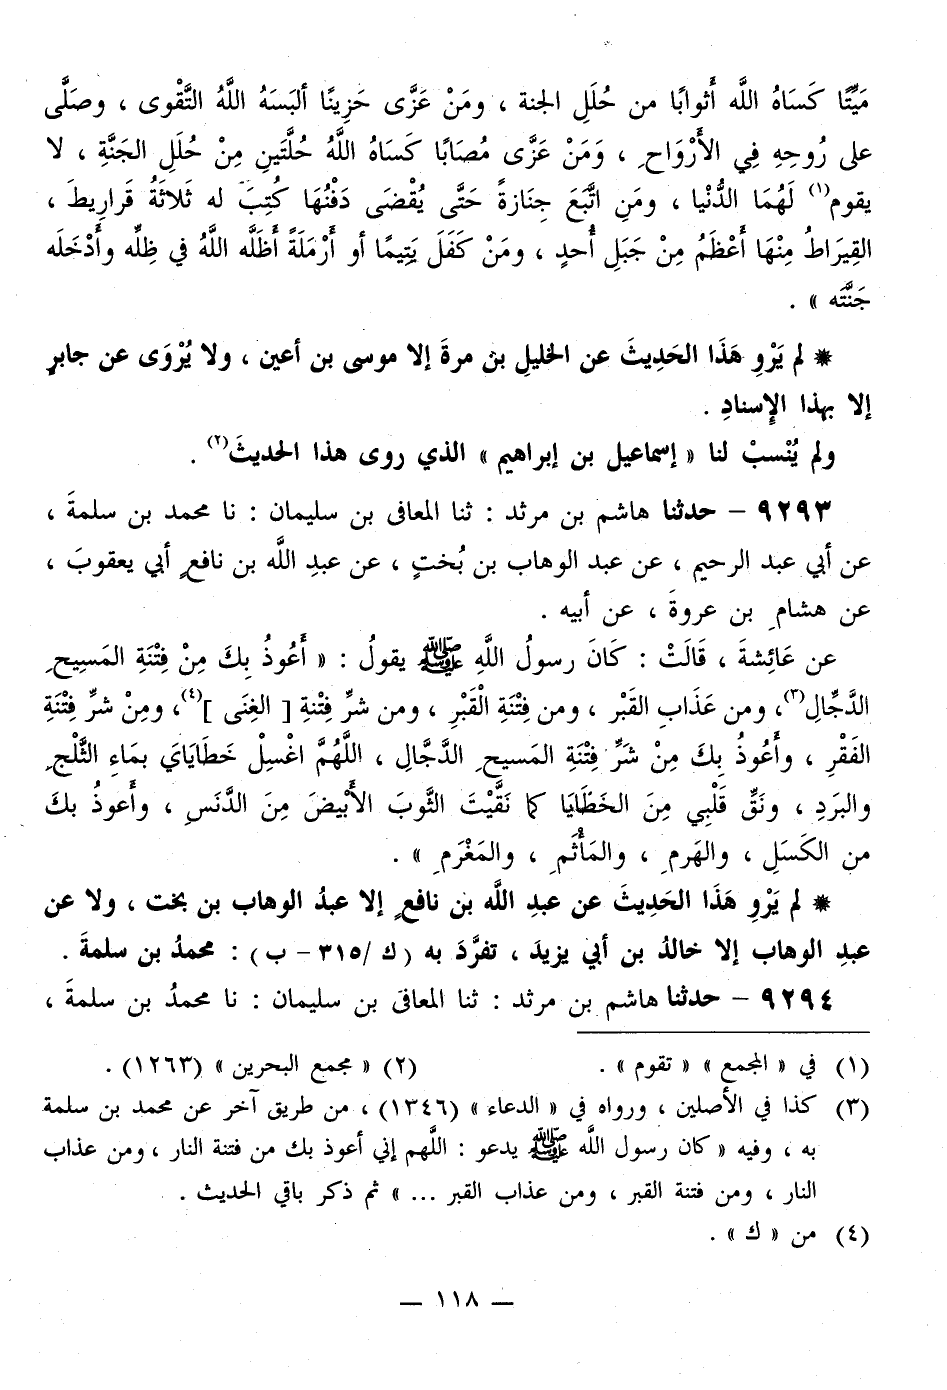 مَيِّتًا كَسَاهُ اللَّه أَثوابًا من حُلَلِ الجنة ، ومَنْ عَزَّى حَزِينًا ألبَسَهُ اللَّهُ التَّقْوى ، وصَلَّى
على رُوحِهِ فِي الأَرْوَاحِ ، وَمَنْ عَزَّى مُصَابًا كَسَاهُ اللَّهُ حُلَّتَينِ مِنْ حُلَلِ الجَنَّةِ ، لا
يقوم(١) لَهُمَا الدُّنْيا ، ومَنِ اتَّبَعَ جِنَازةً حَتَّى يُقْضَى دَفْنُهَا كُتِبَ له ثَلاثَةُ قَرارِيطَ ،
القِيرَاطُ مِنْهَا أَعْظَمُ مِنْ جَبَلِ أُحدٍ ، ومَنْ كَفَلَ يَتِيمًا أو أَرْمَلَةً أَظَلَّه اللَّهُ في ظِلِّه وأَدْخَلَه
جَنَّتَه » .
* لم يَرْوِ هَذَا الحَدِيثَ عن الخليلِ بن مرةَ إلا موسى بن أعين ، ولا يُرْوَى عن جابرٍ
إلا بهذا الإِسنادِ .
ولم يُنْسبْ لنا « إسماعيل بن إبراهيم » الذي روى هذا الحديثَ(٢) .
٩٢٩٣ – حدثنا هاشم بن مرثد : ثنا المعافى بن سليمان : نا محمد بن سلمةَ ،
عن أبي عبد الرحيم ، عن عبد الوهاب بن بُختٍ ، عن عبدِ اللَّه بن نافعٍ أبي يعقوبَ ،
عن هشامِ بن عروةَ ، عن أبيه .
عن عَائِشةَ ، قَالَتْ : كَانَ رسولُ اللَّهِ ﷺ يقولُ : « أَعُوذُ بِكَ مِنْ فِتْنَةِ المَسِيحِ
الدَّجَّالِ(٣)، ومن عَذَابِ القَبْر ، ومن فِتْنَةِ الْقَبْرِ ، ومن شرِّ فِتْنةِ [ الغِنَى ](٤)، ومِنْ شرِّ فِتْنَةِ
الفَقْرِ ، وأَعُوذُ بِكَ مِنْ شَرِّ فِتْنَةِ المَسيحِ الدَّجَّالِ ، اللَّهُمَّ اغْسِلْ خَطَايَايَ بمَاءِ الثَّلْجِ
والبَردِ ، ونَقِّ قَلْبِي مِنَ الخَطَايَا كما نَقَّيْتَ الثَّوبَ الأَبْيضَ مِنَ الدَّنَسِ ، وأَعوذُ بكَ
من الكَسَلِ ، والهَرمِ ، والمَأْثَمِ ، والمَغْرَمِ » .
* لم يَرْوِ هَذَا الحَدِيثَ عن عبدِ اللَّه بن نافعٍ إلا عبدُ الوهاب بن بخت ، ولا عن
عبدِ الوهاب إلا خالدُ بن أبي يزيدَ ، تفرَّدَ به ( ك /٣١٥ – ب ) : محمدُ بن سلمةَ .
٩٢٩٤ – حدثنا هاشم بن مرثد : ثنا المعافى بن سليمان : نا محمدُ بن سلمةَ ،
(١) في « المجمع » « تقوم » . (٢) « مجمع البحرين » (١٢٦٣) .
(٣) كذا في الأصلين ، ورواه في « الدعاء » (١٣٤٦) ، من طريق آخر عن محمد بن سلمة
به ، وفيه « كان رسول اللَّه ﷺ يدعو : اللَّهم إني أعوذ بك من فتنة النار ، ومن عذاب
النار ، ومن فتنة القبر ، ومن عذاب القبر ... » ثم ذكر باقي الحديث .
(٤) من « ك » .
— ١١٨ —